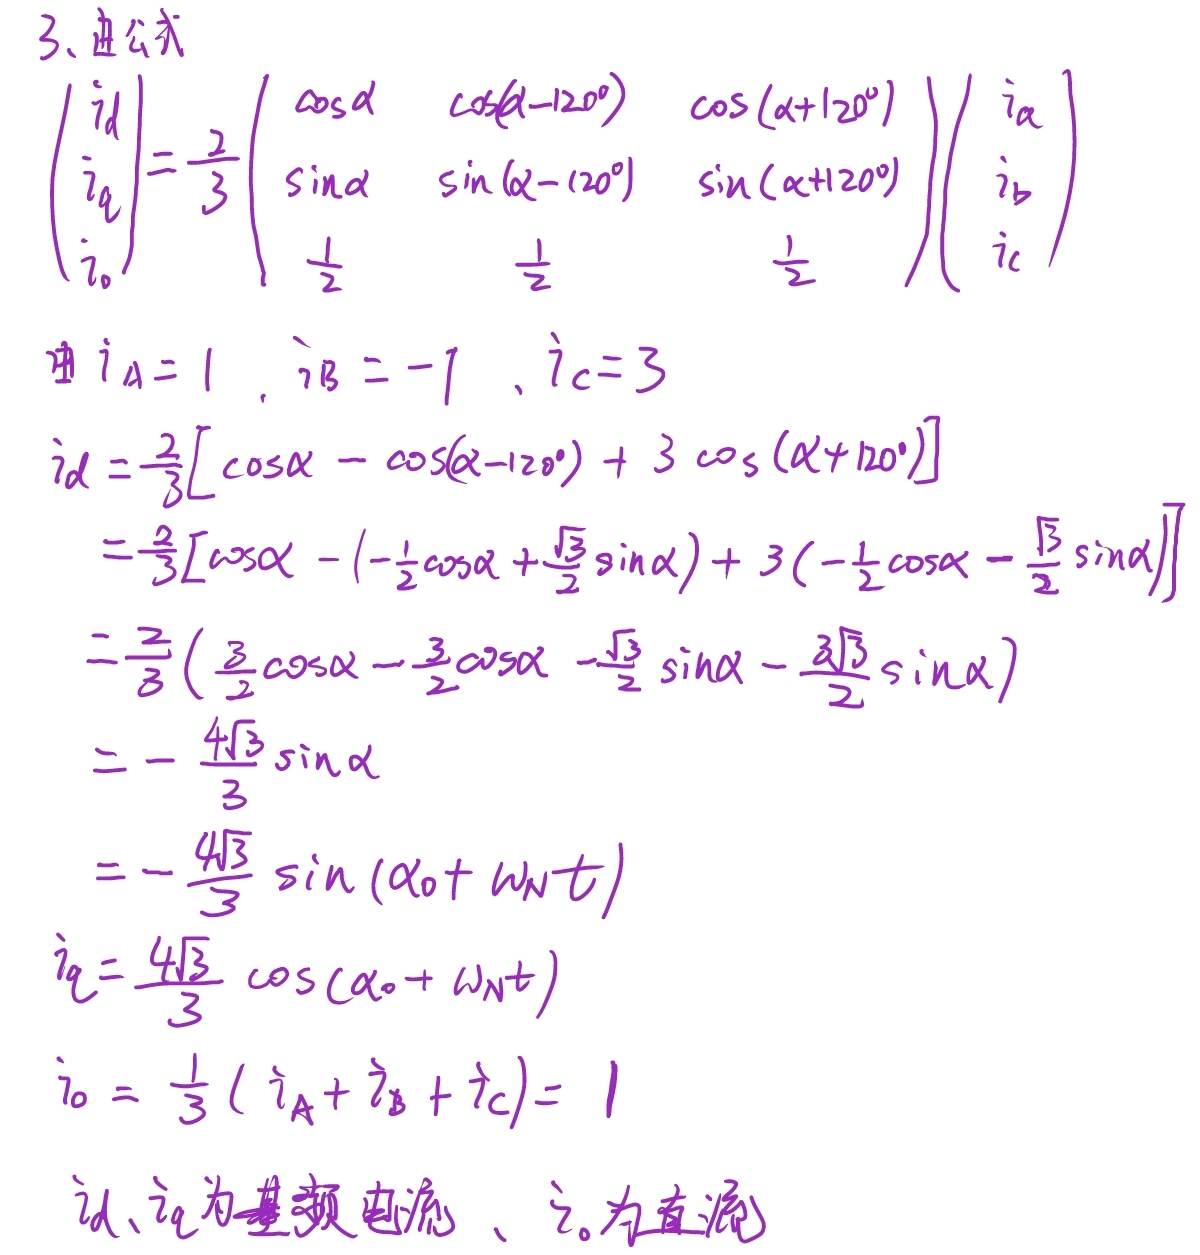 3、由公式
(id iq i₀) = 2/3 (cosα cos(α−120°) cos(α+120°)
sinα sin(α−120°) sin(α+120°)
1/2 1/2 1/2) (ia ib ic)
由 iA=1、iB=−1、iC=3
id = 2/3[cosα − cos(α−120°) + 3cos(α+120°)]
= 2/3[cosα − (−1/2 cosα + √3/2 sinα) + 3(−1/2 cosα − √3/2 sinα)]
= 2/3(3/2 cosα − 3/2 cosα − √3/2 sinα − 3√3/2 sinα)
= − 4√3/3 sinα
= − 4√3/3 sin(α₀+ωNt)
iq = 4√3/3 cos(α₀+ωNt)
i₀ = 1/3(iA+iB+iC) = 1
id、iq为基频电流、i₀为直流